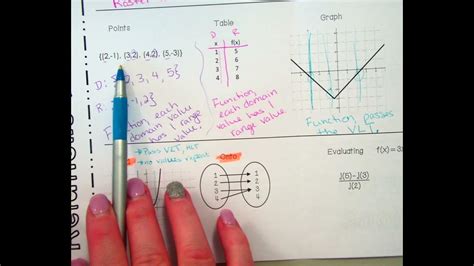 Points
Table
Graph
{(2,-1), (3,2), (4,2), (5,-3)}
D R
x f(x)
1 5
2 6
3 7
4 8
D: {2, 3, 4, 5}
Function, each
domain
value has
1 range
value
Function,
each domain
value has 1
range value
Function passes
the VLT
Pass VLT, HLT
no values repeat
Onto
1 1
2 2
3 3
4 4
Evaluating
J(5)-J(3)
J(2)